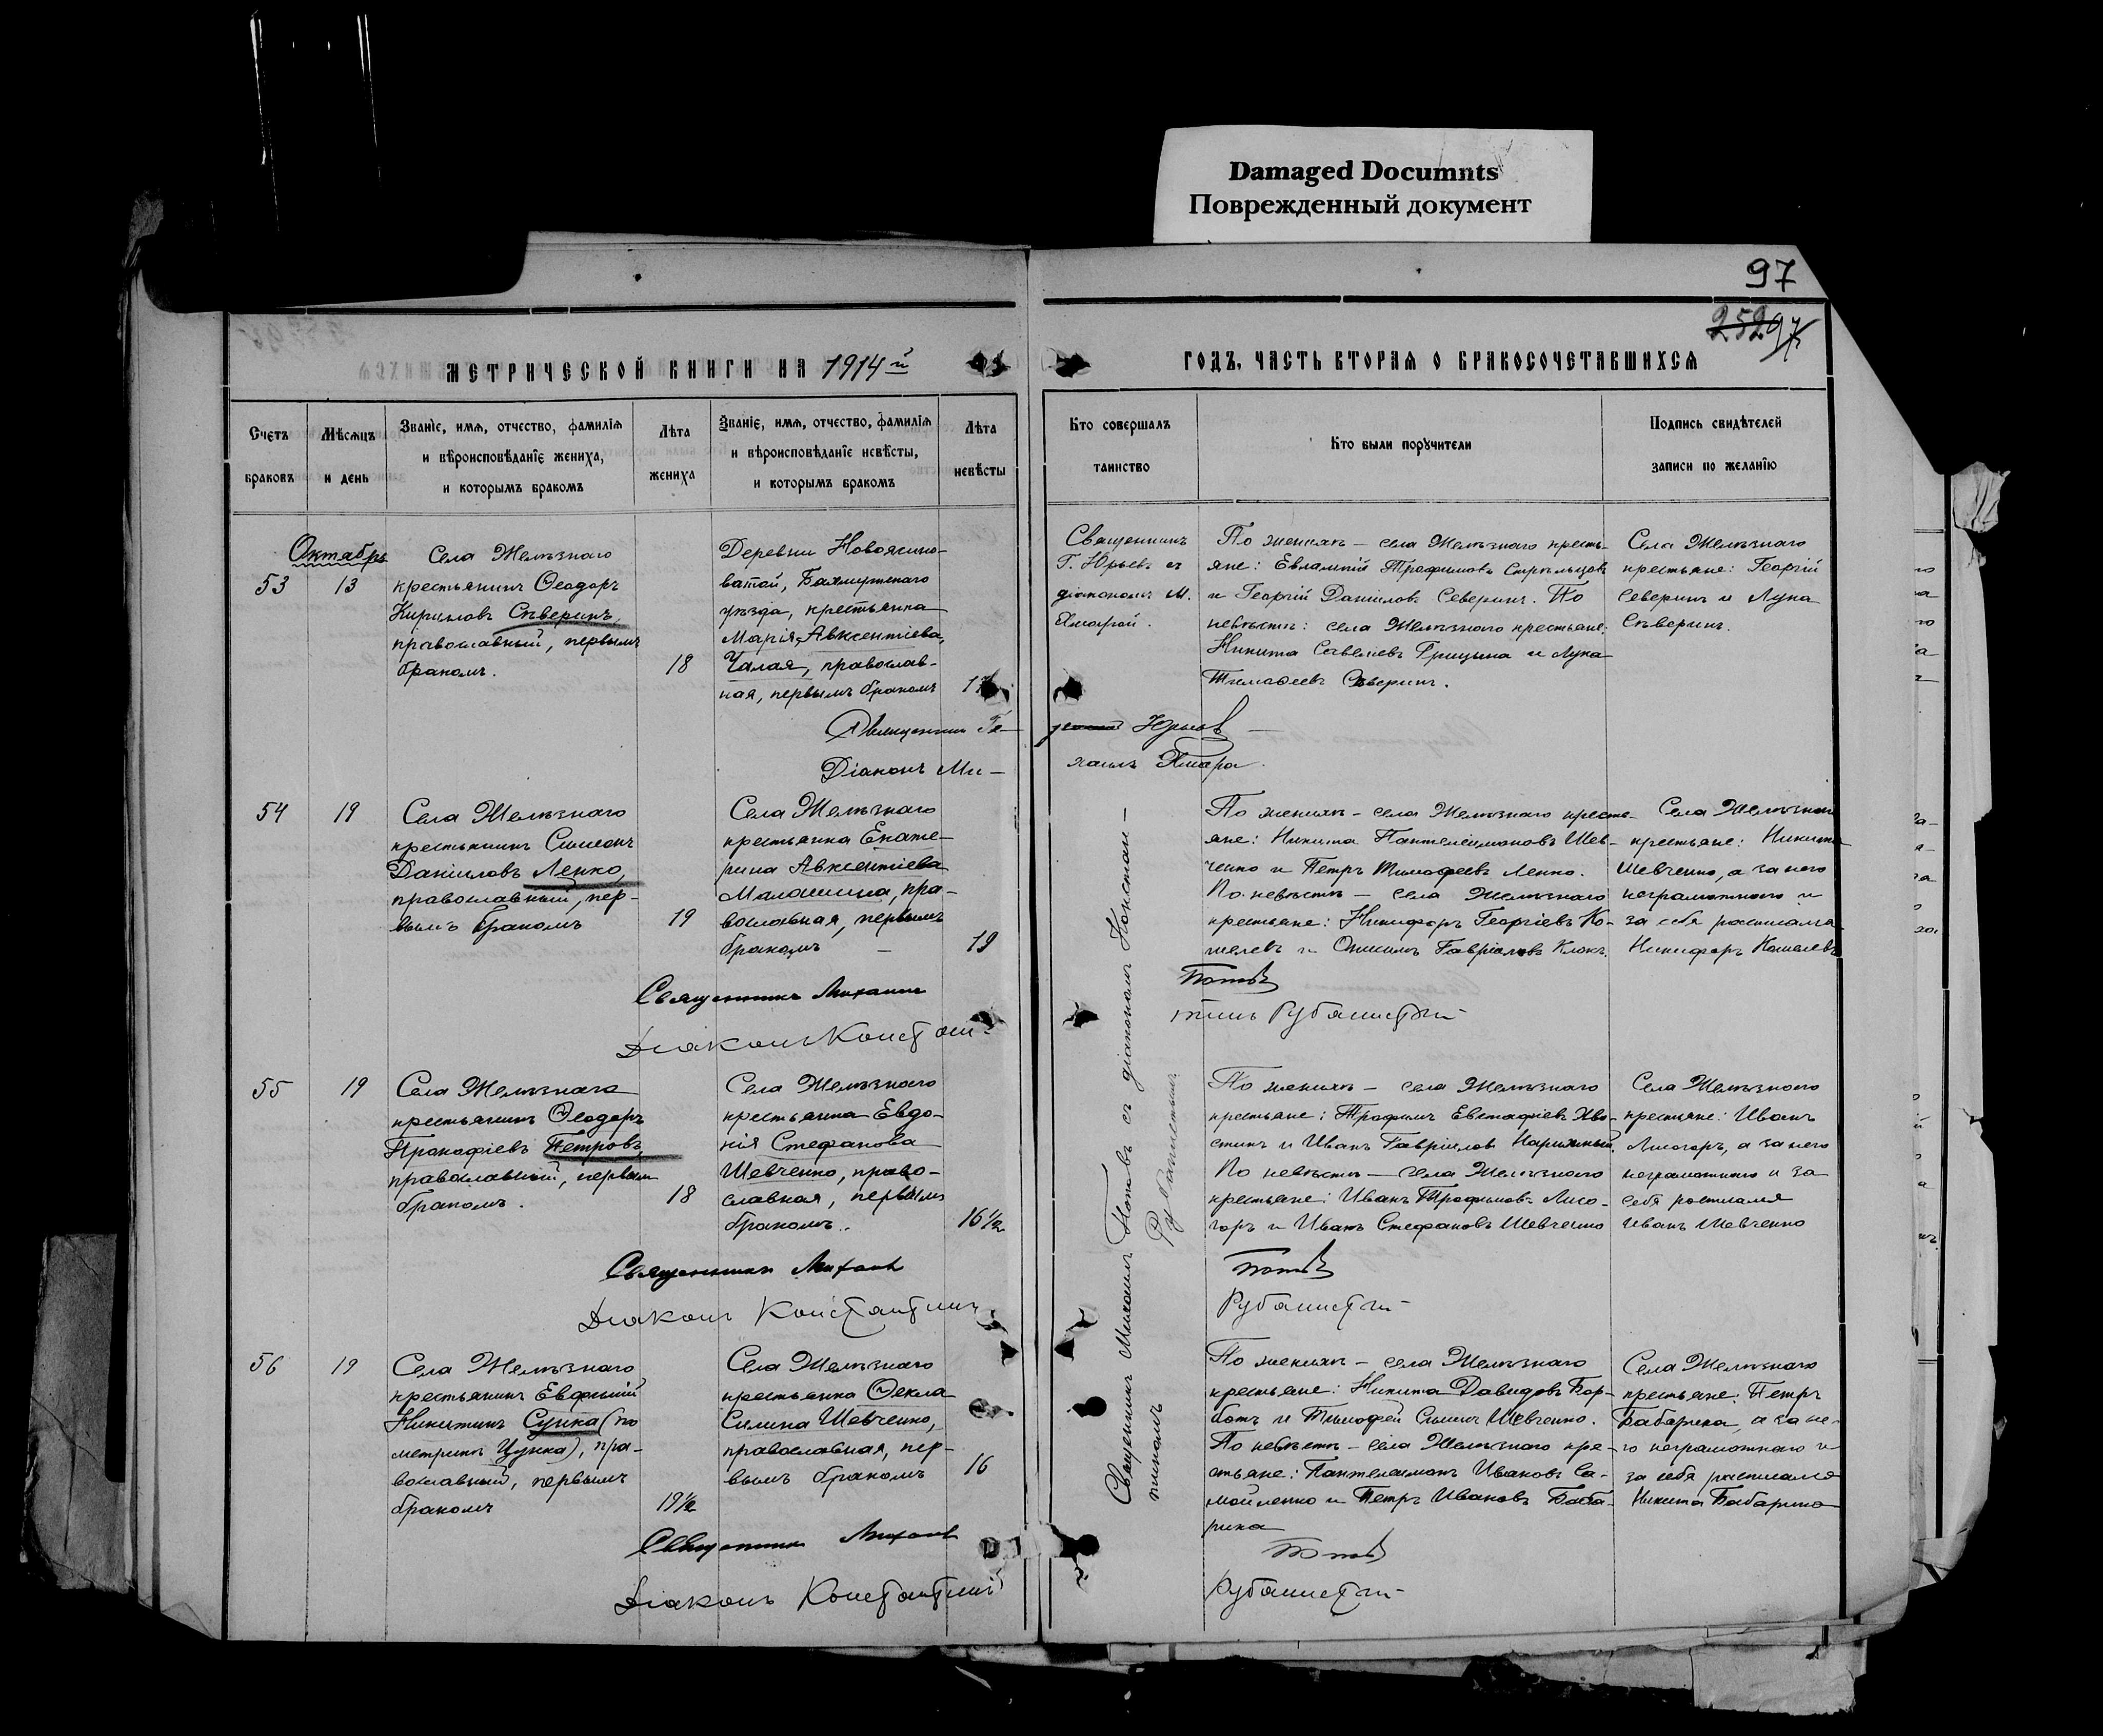 Damaged Documnts
Поврежденный документ
97
252 97
МЕТРИЧЕСКОЙ КНИГИ НА 1914й
ГОДЪ, ЧАСТЬ ВТОРАЯ О БРАКОСОЧЕТАВШИХСЯ
Счетъ браковъ
Мѣсяцъ и день
Званіе, имя, отчество, фамилія
и вѣроисповѣданіе жениха,
и которымъ бракомъ
Лѣта жениха
Званіе, имя, отчество, фамилія
и вѣроисповѣданіе невѣсты,
и которымъ бракомъ
Лѣта невѣсты
Кто совершалъ
таинство
Кто были поручители
Подпись свидѣтелей
записи по желанію
Октябрь
53
13
Села Желѣзнаго
крестьянинъ Ѳеодоръ
Кириловъ Сѣверинъ,
православный, первымъ
бракомъ.
18
Деревни Новоясино-
ватой, Бахмутскаго
уѣзда, крестьянка
Марія Авксентіева
Чалая, православ-
ная, первымъ бракомъ
Священникъ
Г. Юрьевъ съ
діакономъ М.
По женихѣ – села Желѣзнаго кресть-
яне: Евлампій Трофимовъ Стрѣльцовъ
и Георгій Даніиловъ Северинъ. По
невѣстѣ: села Желѣзнаго крестьяне:
Никита Савеліевъ Грицына и Лука
Тимофеевъ Сѣверинъ.
Села Желѣзнаго
крестьяне: Георгій
Северинъ и Лука
Сѣверинъ.
Священникъ Ге-
Юрьевъ
Діаконъ Ми-
хаилъ
54
19
Села Желѣзнаго
крестьянинъ Симеонъ
Даніиловъ Лепко,
православный, пер-
вымъ бракомъ
19
Села Желѣзнаго
крестьянка Екате-
рина Авксентіева
Малашина, пра-
вославная, первымъ
бракомъ –
19
По женихѣ – села Желѣзнаго кресть-
яне: Никита Пантелеимоновъ Шев-
ченко и Петръ Тимофеевъ Лепко.
По невѣстѣ – села Желѣзнаго
крестьяне: Никифоръ Георгіевъ Ко-
шелевъ и Онисимъ Гавріиловъ Клокъ.
Села Желѣзнаго
крестьяне: Никита
Шевченко, а за него
неграмотнаго и
за себя росписался
Никифоръ Кошелевъ
Священникъ Михаилъ
Поповъ
Діаконъ Констан-
тинъ
55
19
Села Желѣзнаго
крестьянинъ Ѳеодоръ
Прокофіевъ Петровъ,
православный, первымъ
бракомъ.
18
Села Желѣзнаго
крестьянка Евдо-
кія Стефанова
Шевченко, право-
славная, первымъ
бракомъ.
16 1/2
По женихѣ – села Желѣзнаго
крестьяне: Трофимъ Евстафіевъ Хво-
стикъ и Иванъ Гавріиловъ Нарижный.
По невѣстѣ – села Желѣзнаго
крестьяне: Иванъ Трофимовъ Лисо-
горъ и Иванъ Стефановъ Шевченко
Села Желѣзнаго
крестьяне: Иванъ
Лисогоръ, а за него
неграмотнаго и за
себя росписался
Иванъ Шевченко
Священникъ Михаилъ
Поповъ
Діаконъ Константинъ
56
19
Села Желѣзнаго
крестьянинъ Евфимій
Никитинъ Сукка (по
метрикѣ Цукка), пра-
вославный, первымъ
бракомъ
19 1/2
Села Желѣзнаго
крестьянка Ѳекла
Силина Шевченко,
православная, пер-
вымъ бракомъ
16
По женихѣ – села Желѣзнаго
крестьяне: Никита Давидовъ Гор-
батъ и Тимофей Силинъ Шевченко.
По невѣстѣ – села Желѣзнаго кре-
стьяне: Пантелеимонъ Ивановъ Са-
мойленко и Петръ Ивановъ Баба-
рика
Села Желѣзнаго
крестьяне: Петръ
Бабарика, а за не-
го неграмотнаго и
за себя росписался
Никита Бабарика
Священникъ Михаилъ
Поповъ
Діаконъ Константинъ
Священникъ Михаилъ Поповъ съ діакономъ Констан-
тиномъ